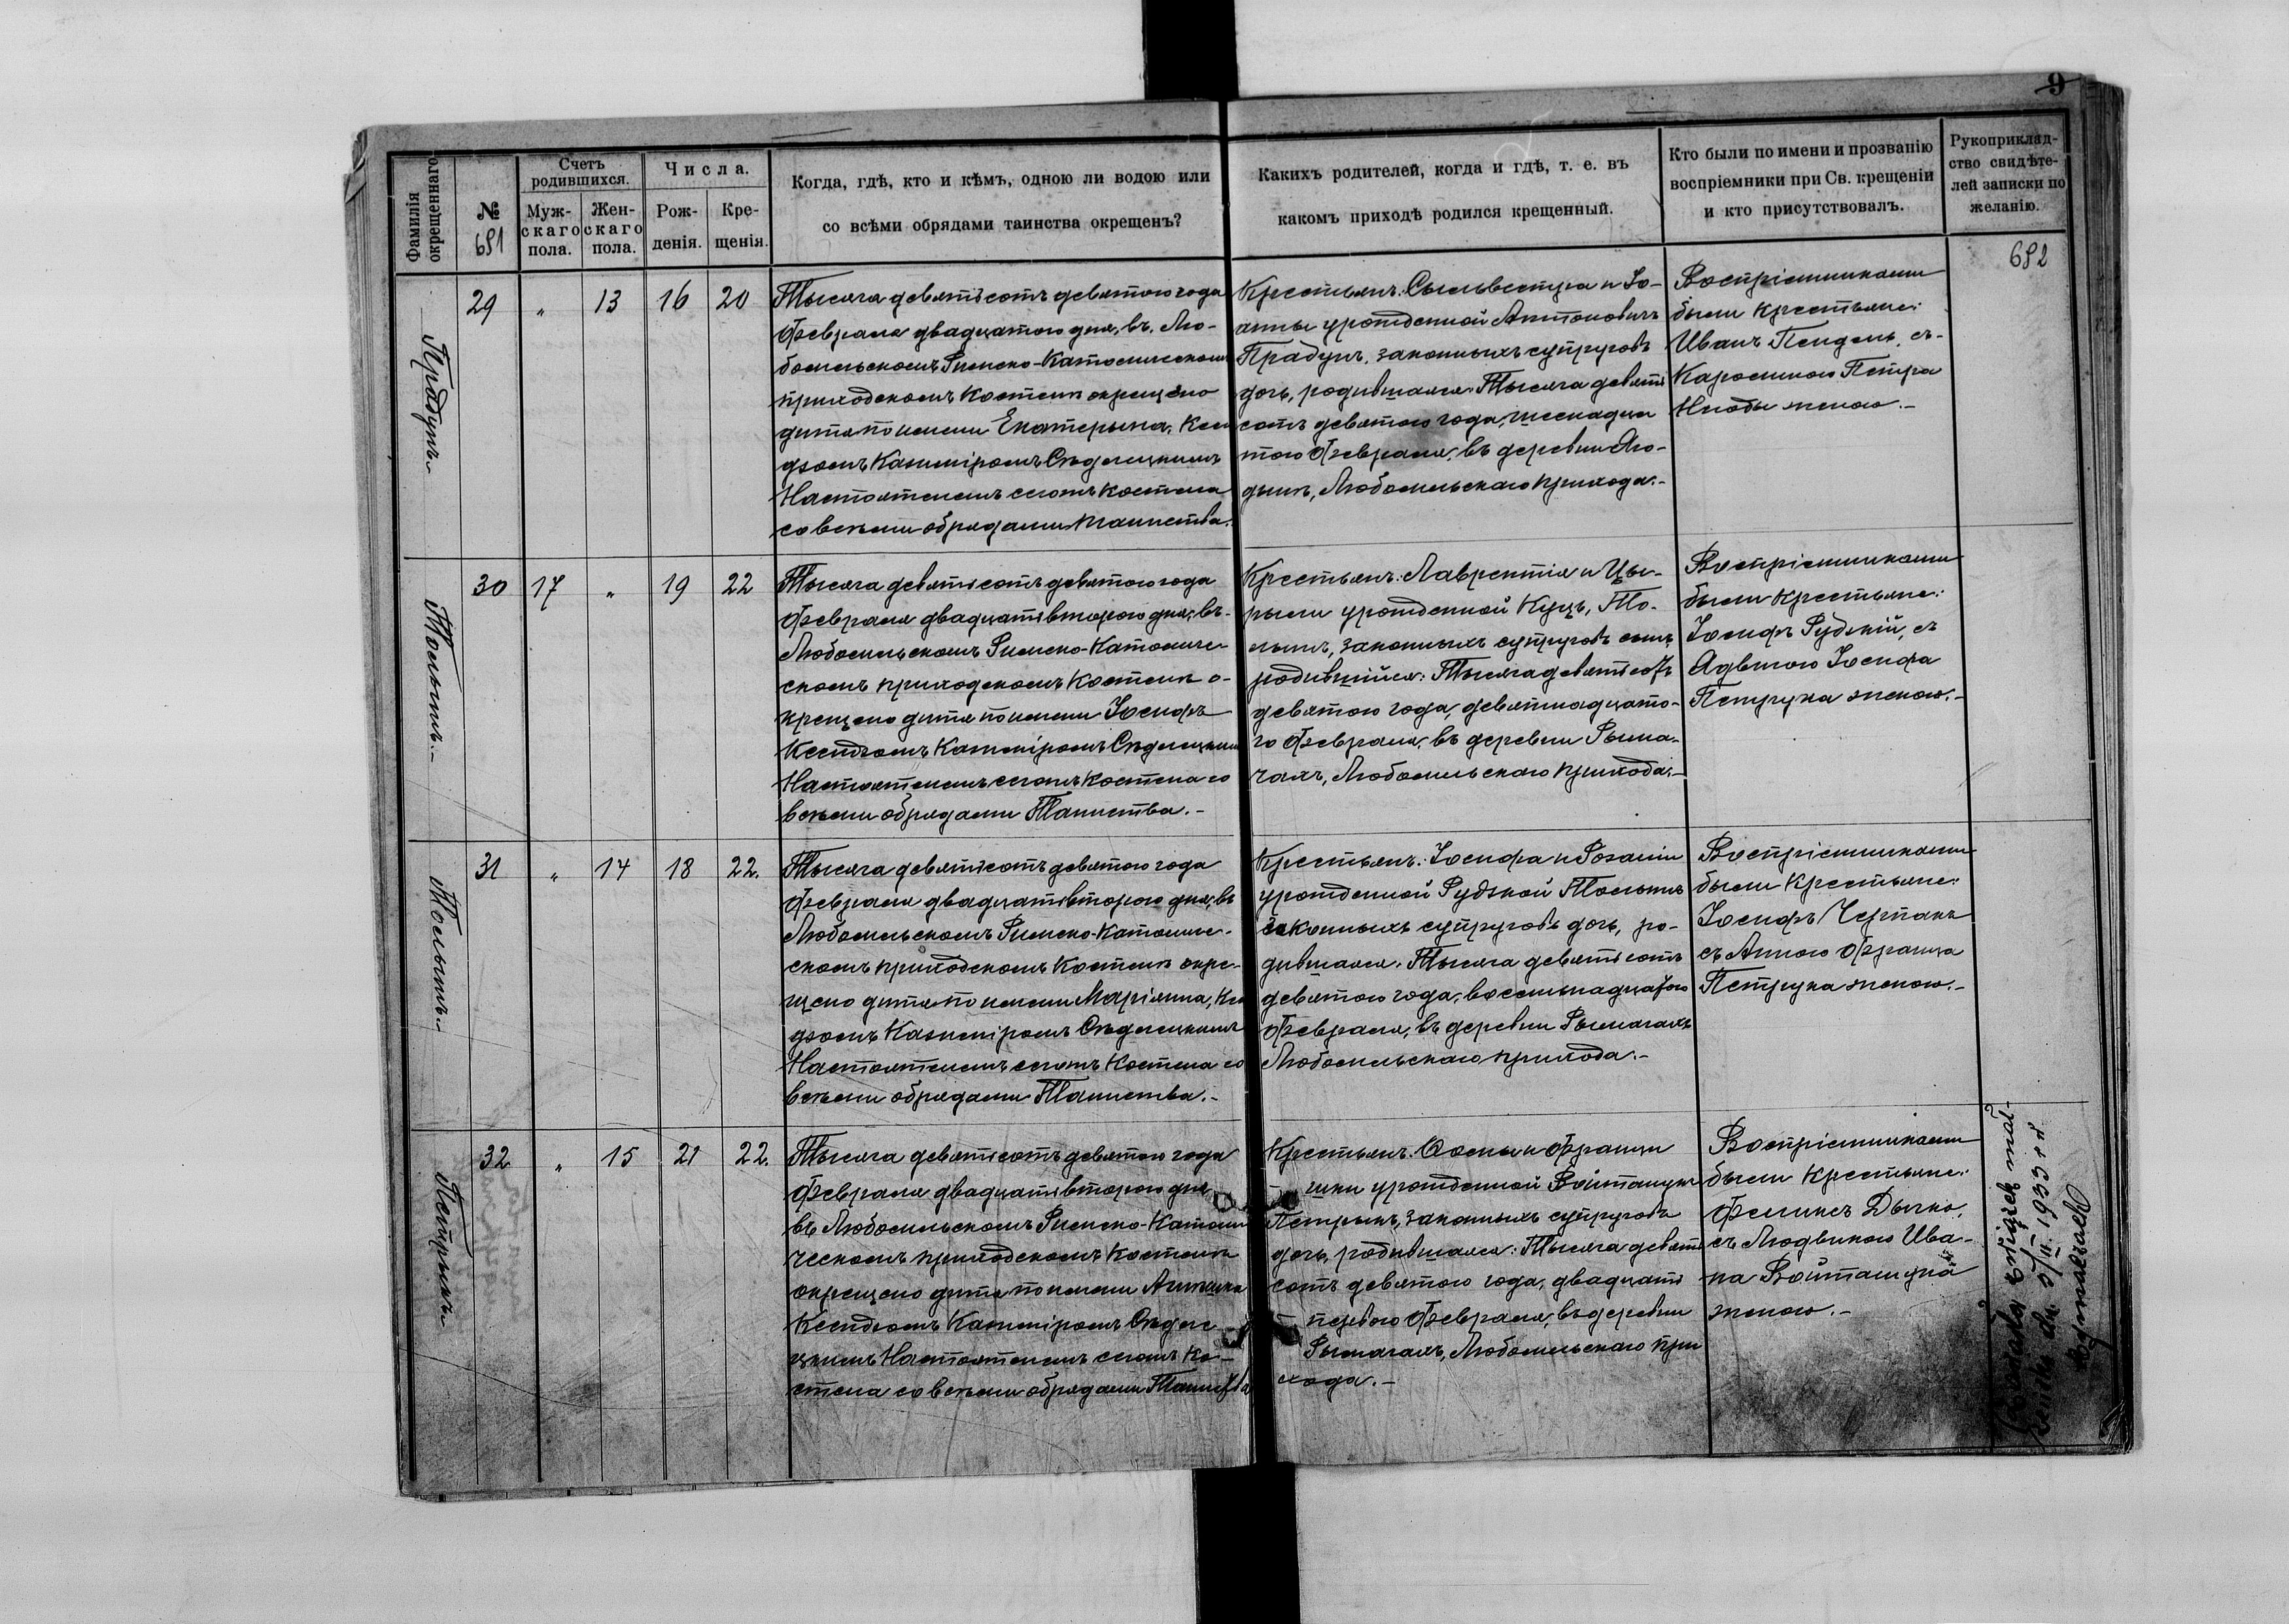 9
Фамилія окрещеннаго
№
681
Счетъ родившихся.
Муж-
скаго
пола.
Жен-
скаго
пола.
Числа.
Рож-
денія.
Кре-
щенія.
Когда, гдѣ, кто и кѣмъ, одною ли водою или
со всѣми обрядами таинства окрещенъ?
Какихъ родителей, когда и гдѣ, т. е. въ
какомъ приходѣ родился крещенный.
Кто были по имени и прозванію
воспріемники при Св. крещеніи
и кто присутствовалъ.
Рукоприклад-
ство свидѣте-
лей записки по
желанію.
682
Прадунъ.
29 " 13 16 20
Тысяча девятьсотъ девятого года
Февраля двадцатого дня, въ Лю-
бомльскомъ Римско-Католическомъ
приходскомъ Костелѣ окрещено
дитя по имени Екатерына, Ксен
дзомъ Казиміромъ Сѣдлецкимъ
Настоятелемъ сегожъ Костела
со всѣми обрядами таинства.
Крестьянъ: Сыльвестра и Іо-
анны урожденной Антоновичъ
Прадунъ, законныхъ супруговъ
дочь, родившаяся: Тысяча девять
сотъ девятого года, шеснадца
того Февраля, въ деревни Яго-
дынѣ, Любомльскаго прихода.-
Воспріемниками
были крестьяне:
Иванъ Пендель, съ
Каролиною Петра
женою.-
Тосынъ.
30 17 " 19 22
Тысяча девятьсотъ девятого года
Февраля двадцать второго дня, въ
Любомльскомъ Римско-Католиче-
скомъ приходскомъ Костелѣ о-
крещено дитя по имени Іосифъ
Ксендзомъ Казиміромъ Сѣдлецкимъ
Настоятелемъ сегожъ Костела со
всѣми обрядами Таинства.-
Крестьянъ: Лаврентія и Цы-
рыли урожденной Куць,
законныхъ супруговъ сынъ,
родившійся: Тысяча девятьсотъ
девятого года, девятнадцато-
го Февраля, въ деревни Рыма-
чахъ, Любомльскаго прихода.-
Воспріемниками
были крестьяне:
Іосифъ Рудскій, съ
Іосифа
Петрука женою.-
31 " 14 18 22.
Тысяча девятьсотъ девятого года
Февраля двадцать второго дня, въ
Любомльскомъ Римско-Католиче-
скомъ приходскомъ Костелѣ окре-
щено дитя по имени Маріанна, Ксен
дзомъ Казиміромъ Сѣдлецкимъ
Настоятелемъ сегожъ Костела со
всѣми обрядами Таинства.-
Крестьянъ: Іосифа и Розаліи
урожденной Рудской
законныхъ супруговъ дочь, ро-
дившаяся: Тысяча девятьсотъ
девятого года, восемнадцатого
Февраля, въ деревни Рымачахъ
Любомльскаго прихода.-
Воспріемниками
были Крестьяне:
Іосифъ Черпакъ
съ Анною Франца
Петрука женою.-
Петрыкъ.
32 " 15 21 22.
Тысяча девятьсотъ девятого года
Февраля двадцать второго дня,
въ Любомльскомъ Римско-Католи
ческомъ приходскомъ Костелѣ
окрещено дитя по имени
Ксендзомъ Казиміромъ Сѣдле
цкимъ Настоятелемъ сегожъ Ко-
стела со всѣми обрядами Таинства
Крестьянъ: Франци
шки урожденной Войташукъ
Петрыкъ, законныхъ супруговъ
дочь, родившаяся: Тысяча девять
сотъ девятого года, двадцать
первого Февраля, въ деревни
Рымачахъ, Любомльскаго при
хода.-
Воспріемниками
были Крестьяне:
Феликсъ Дычко,
съ Людвикою Ива-
на Войташука
женою.-
związek mał-
dn. 5/II. 1933 r.